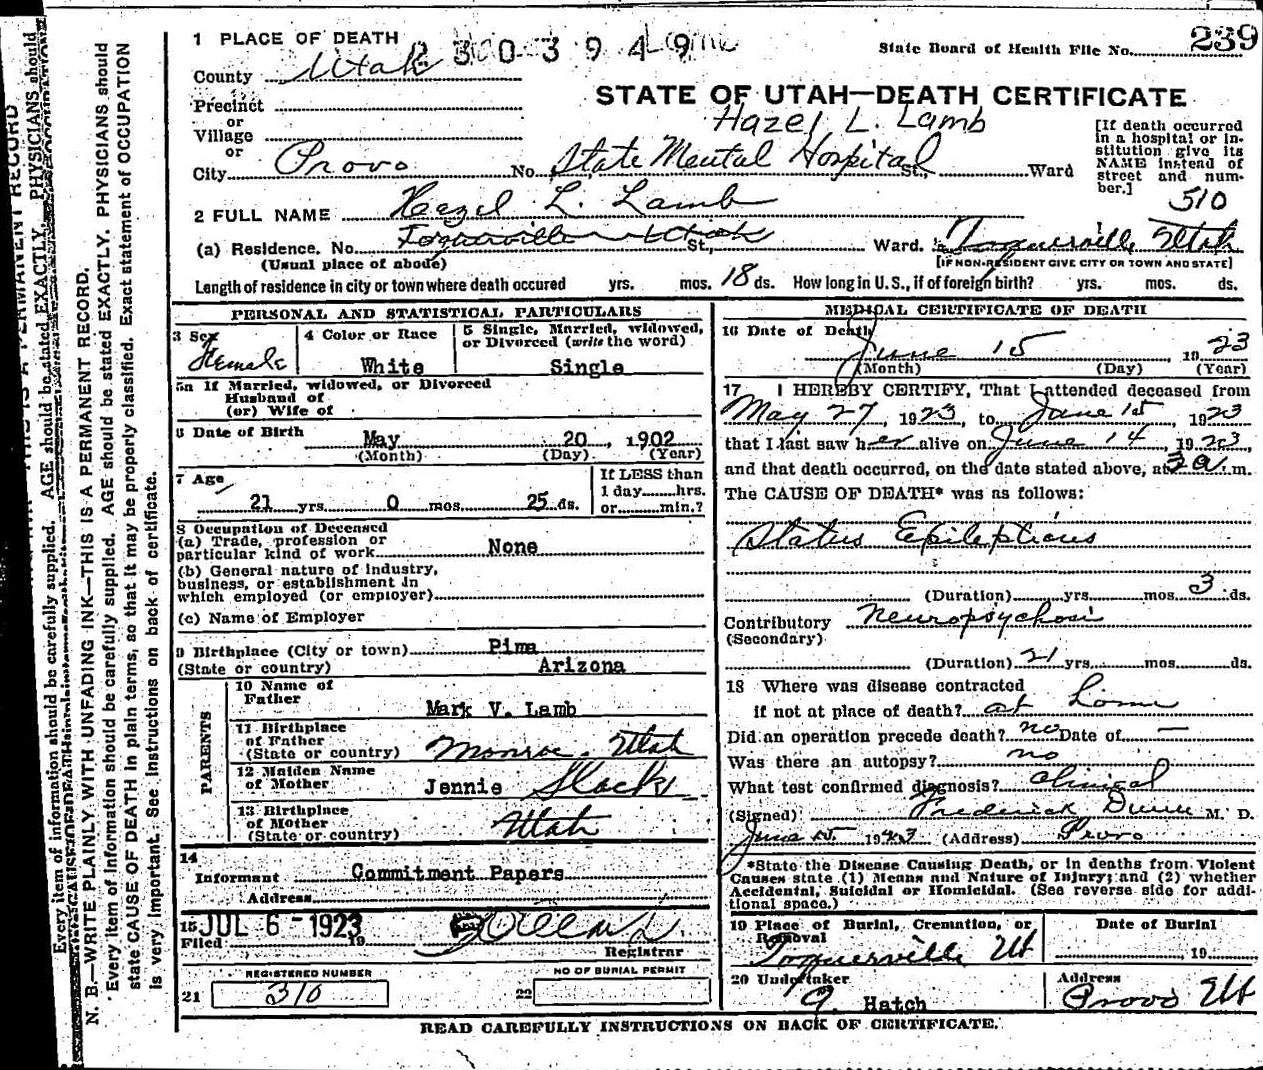 1 PLACE OF DEATH 23003949
State Board of Health File No. 239
County Utah
STATE OF UTAH—DEATH CERTIFICATE
Precinct
or
Village
or
Hazel L. Lamb
City Provo No. State Mental Hospital St., Ward
[If death occurred
in a hospital or in-
stitution give its
NAME instead of
street and num-
ber.]
510
2 FULL NAME Hazel L. Lamb
(a) Residence. No. Toquerville Utah St., Ward. Toquerville Utah
(Usual place of abode) [IF NON-RESIDENT GIVE CITY OR TOWN AND STATE]
Length of residence in city or town where death occured yrs. mos. 18 ds. How long in U.S., if of foreign birth? yrs. mos. ds.
PERSONAL AND STATISTICAL PARTICULARS
3 Sex
Female
4 Color or Race
White
5 Single, Married, widowed,
or Divorced (write the word)
Single
5a If Married, widowed, or Divorced
Husband of
(or) Wife of
6 Date of Birth May 20, 1902
(Month) (Day) (Year)
7 Age
21 yrs. 0 mos. 25 ds.
If LESS than
1 day hrs.
or min.?
8 Occupation of Deceased
(a) Trade, profession or
particular kind of work None
(b) General nature of industry,
business, or establishment in
which employed (or employer)
(c) Name of Employer
9 Birthplace (City or town) Pima
(State or country) Arizona
PARENTS
10 Name of
Father
Mark V. Lamb
11 Birthplace
of Father
(State or country) Monroe, Utah
12 Maiden Name
of Mother Jennie Slack
13 Birthplace
of Mother
(State or country) Utah
14
Informant Commitment Papers
Address
15 JUL 6 - 1923
Filed 19
Registrar
REGISTERED NUMBER
21 310
NO OF BURIAL PERMIT
22
MEDICAL CERTIFICATE OF DEATH
16 Date of Death
June 15 1923
(Month) (Day) (Year)
17 I HEREBY CERTIFY, That I attended deceased from
May 27, 1923, to June 15, 1923
that I last saw her alive on June 14, 1923,
and that death occurred, on the date stated above, at 3 a. m.
The CAUSE OF DEATH* was as follows:
Status Epilepticus
(Duration) yrs. mos. 3 ds.
Contributory Neuropsychosis
(Secondary)
(Duration) 21 yrs. mos. ds.
18 Where was disease contracted
if not at place of death? at home
Did an operation precede death? no Date of —
Was there an autopsy? no
What test confirmed diagnosis? Clinical
(Signed) Frederick Dunn M. D.
June 15, 1923 (Address) Provo
*State the Disease Causing Death, or in deaths from Violent
Causes state (1) Means and Nature of Injury; and (2) whether
Accidental, Suicidal or Homicidal. (See reverse side for addi-
tional space.)
19 Place of Burial, Cremation, or
Removal
Toquerville Ut
Date of Burial
19
20 Undertaker
Hatch
Address
Provo Ut
READ CAREFULLY INSTRUCTIONS ON BACK OF CERTIFICATE.
N. B.—WRITE PLAINLY WITH UNFADING INK—THIS IS A PERMANENT RECORD.
Every item of information should be carefully supplied. AGE should be stated EXACTLY. PHYSICIANS should
state CAUSE OF DEATH in plain terms, so that it may be properly classified. Exact statement of OCCUPATION
is very important. See instructions on back of certificate.
Every item of information should be carefully supplied. AGE should be stated EXACTLY. PHYSICIANS should